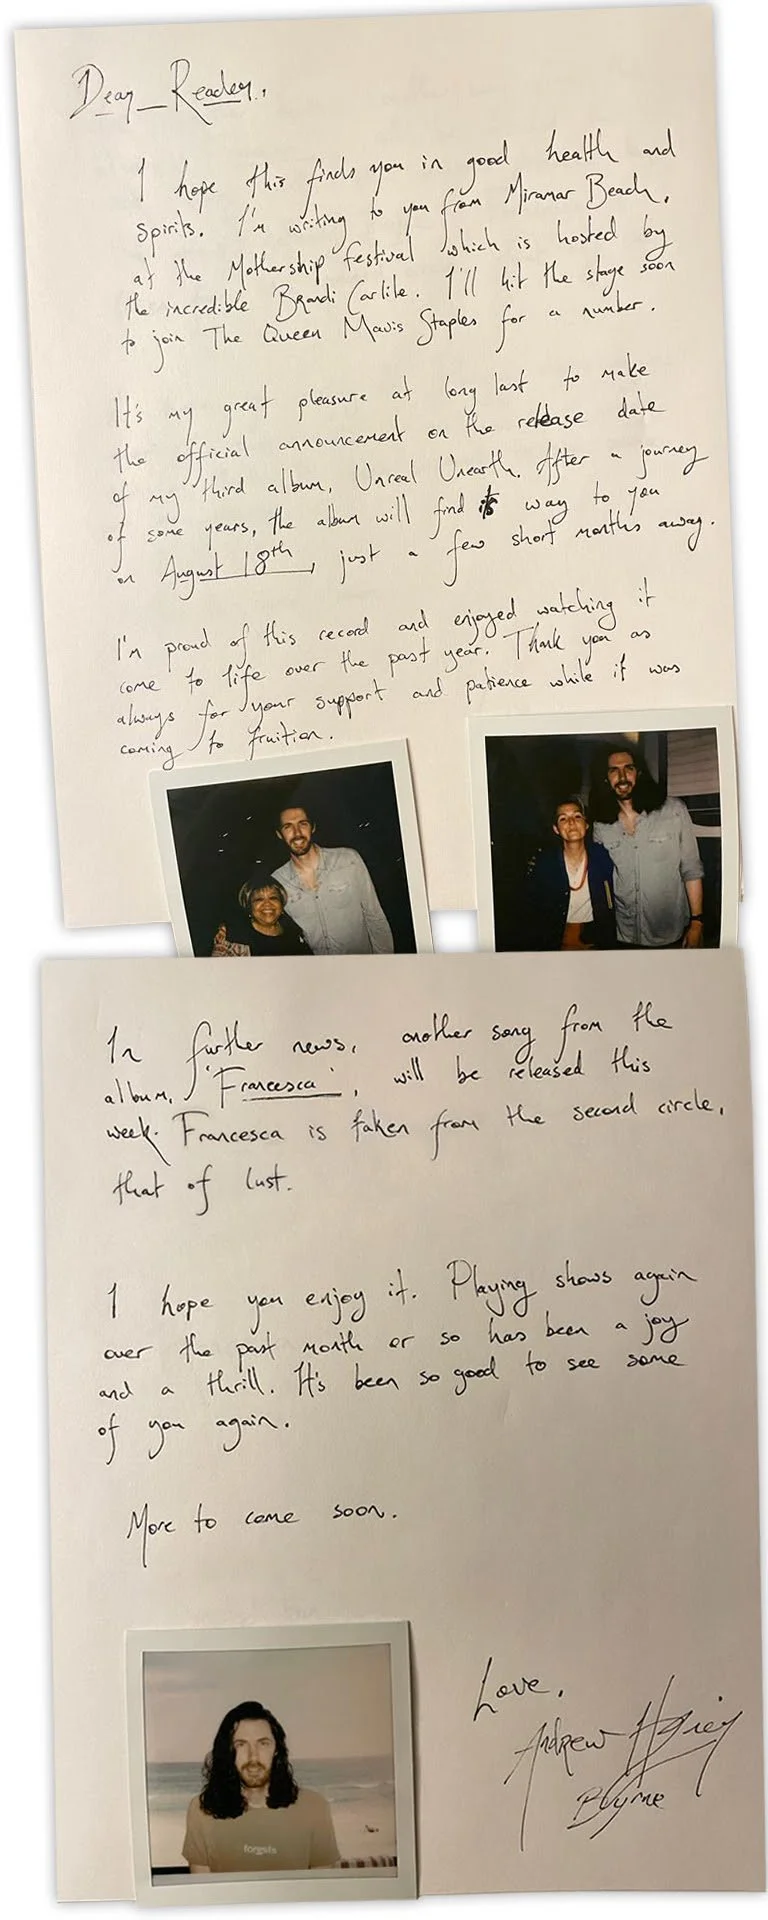 Dear Reader,
I hope this finds you in good health and
spirits. I'm writing to you from Miramar Beach,
at the Mothership festival which is hosted by
the incredible Brandi Carlile. I'll hit the stage soon
to join The Queen Mavis Staples for a number.
It's my great pleasure at long last to make
the official announcement on the release date
of my third album, Unreal Unearth. After a journey
of some years, the album will find its way to you
on August 18th, just a few short months away.
I'm proud of this record and enjoyed watching it
come to life over the past year. Thank you as
always for your support and patience while it was
coming to fruition.
In further news, another song from the
album, 'Francesca', will be released this
week. Francesca is taken from the second circle,
that of lust.
I hope you enjoy it. Playing shows again
over the past month or so has been a joy
and a thrill. It's been so good to see some
of you again.
More to come soon.
forests
Love,
Andrew Hozier
Byrne